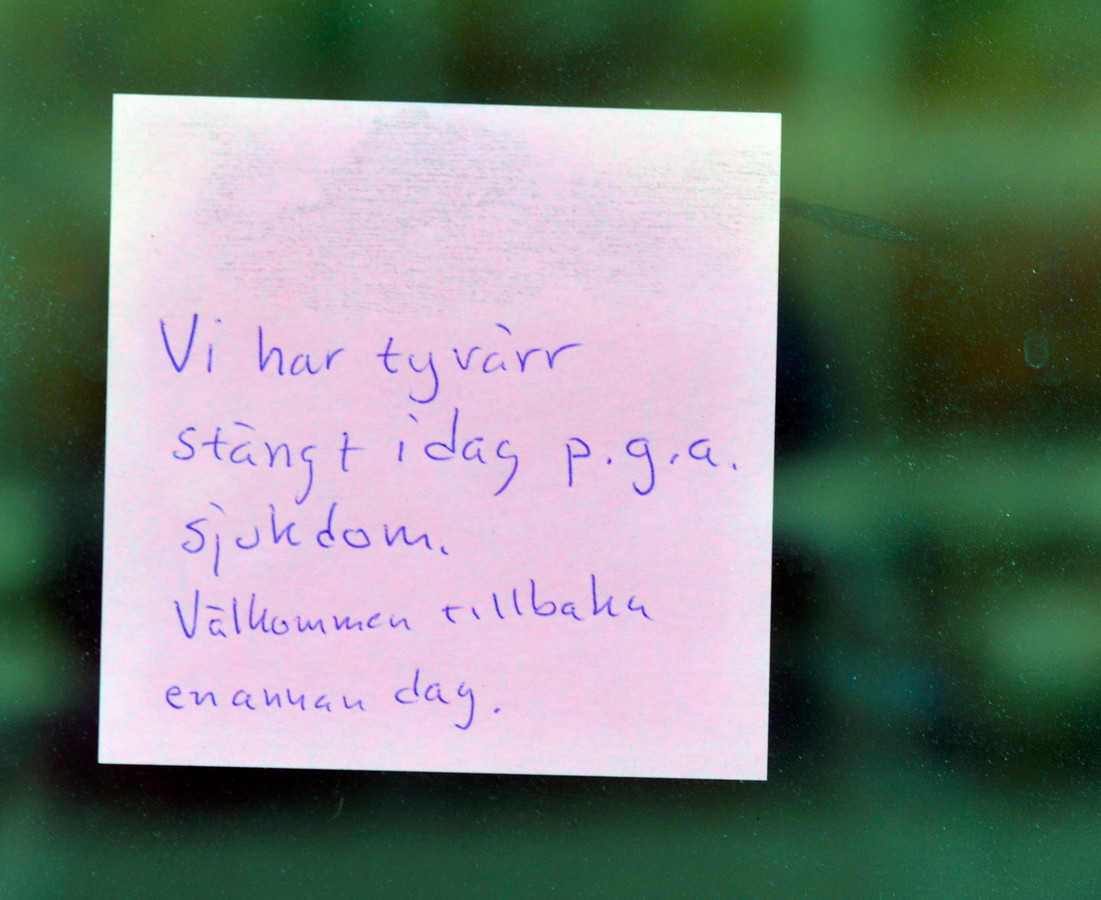 Vi har tyvärr
stängt idag p.g.a.
sjukdom.
Välkommen tillbaka
en annan dag.